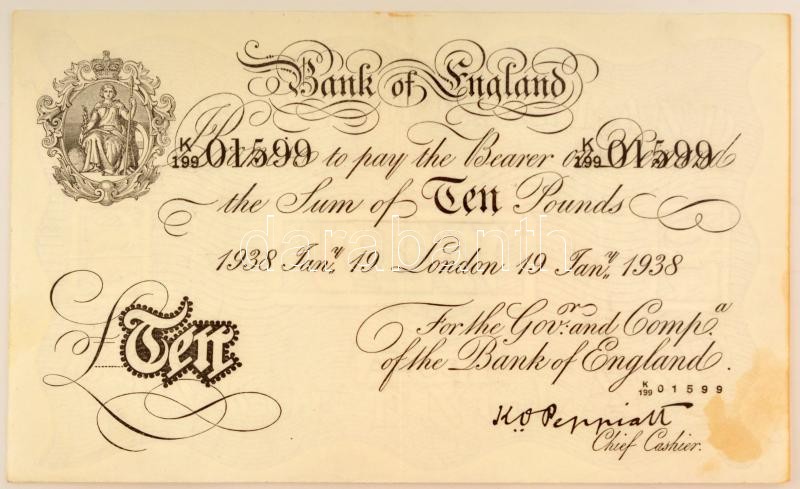 Bank of England
K/199 01599 to pay the Bearer on Demand K/199 01599
the Sum of Ten Pounds
darabanth
1938 Jan.y 19 London 19 Jan.y 1938
For the Gov.r and Comp.a
£ Ten
of the Bank of England.
K/199 01599
K.O. Peppiatt
Chief Cashier.